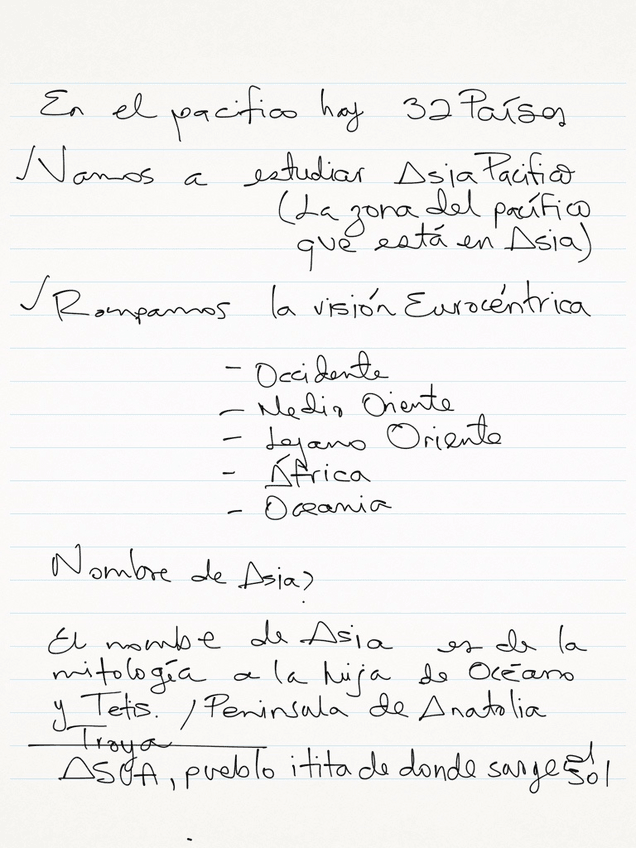 En el pacifico hay 32 Países
✓Vamos a estudiar Asia Pacifico
(La zona del pacífico
que está en Asia)
✓Rompamos la visión Eurocéntrica
- Occidente
- Medio Oriente
- Lejano Oriente
- África
- Oceania
Nombre de Asia?
El nombre de Asia es de la
mitología a la hija de Océano
y Tetis. / Peninsula de Anatolia
Troya
pueblo itita de donde surge el
Sol